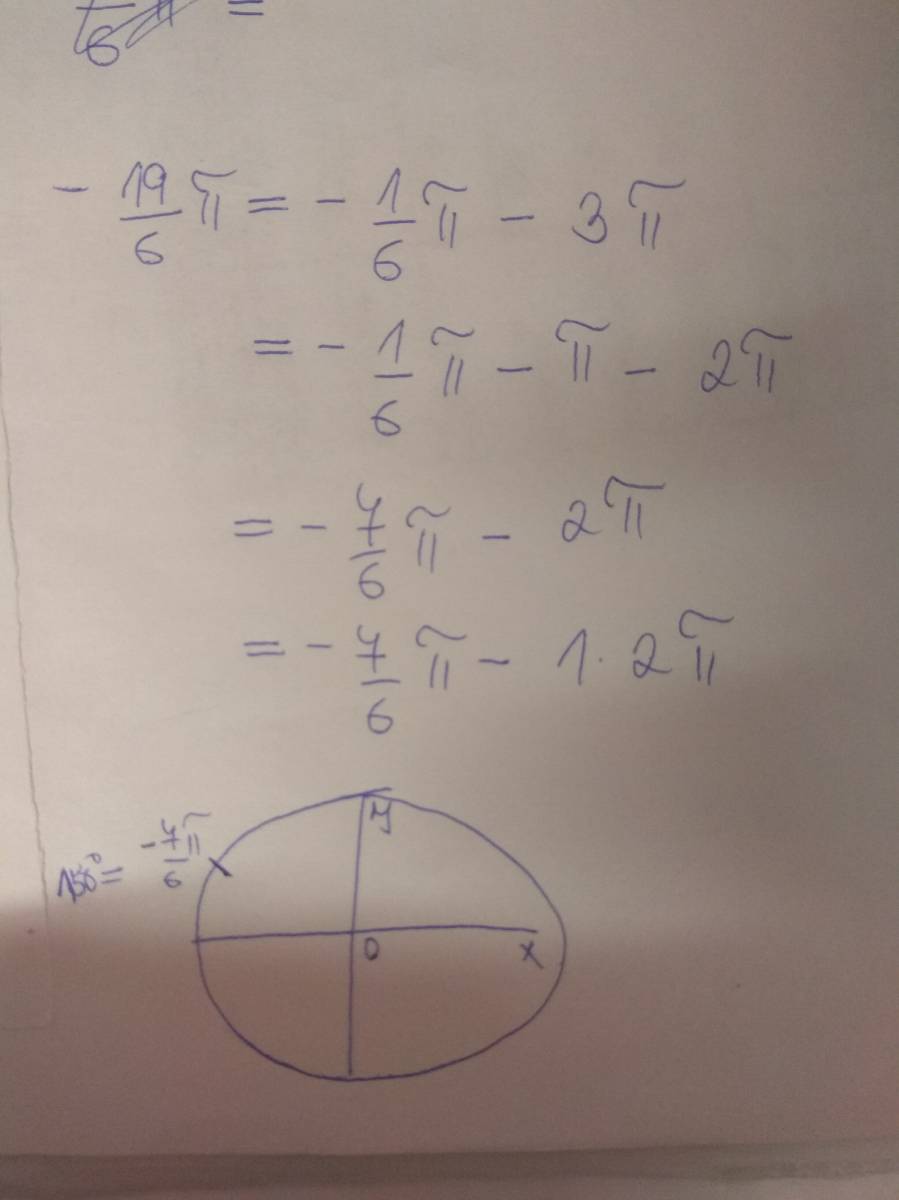 6 π =
- 19/6 π = - 1/6 π - 3π
= - 1/6 π - π - 2π
= - 7/6 π - 2π
= - 7/6 π - 1 · 2π
y
150° = - 7π/6
0
x